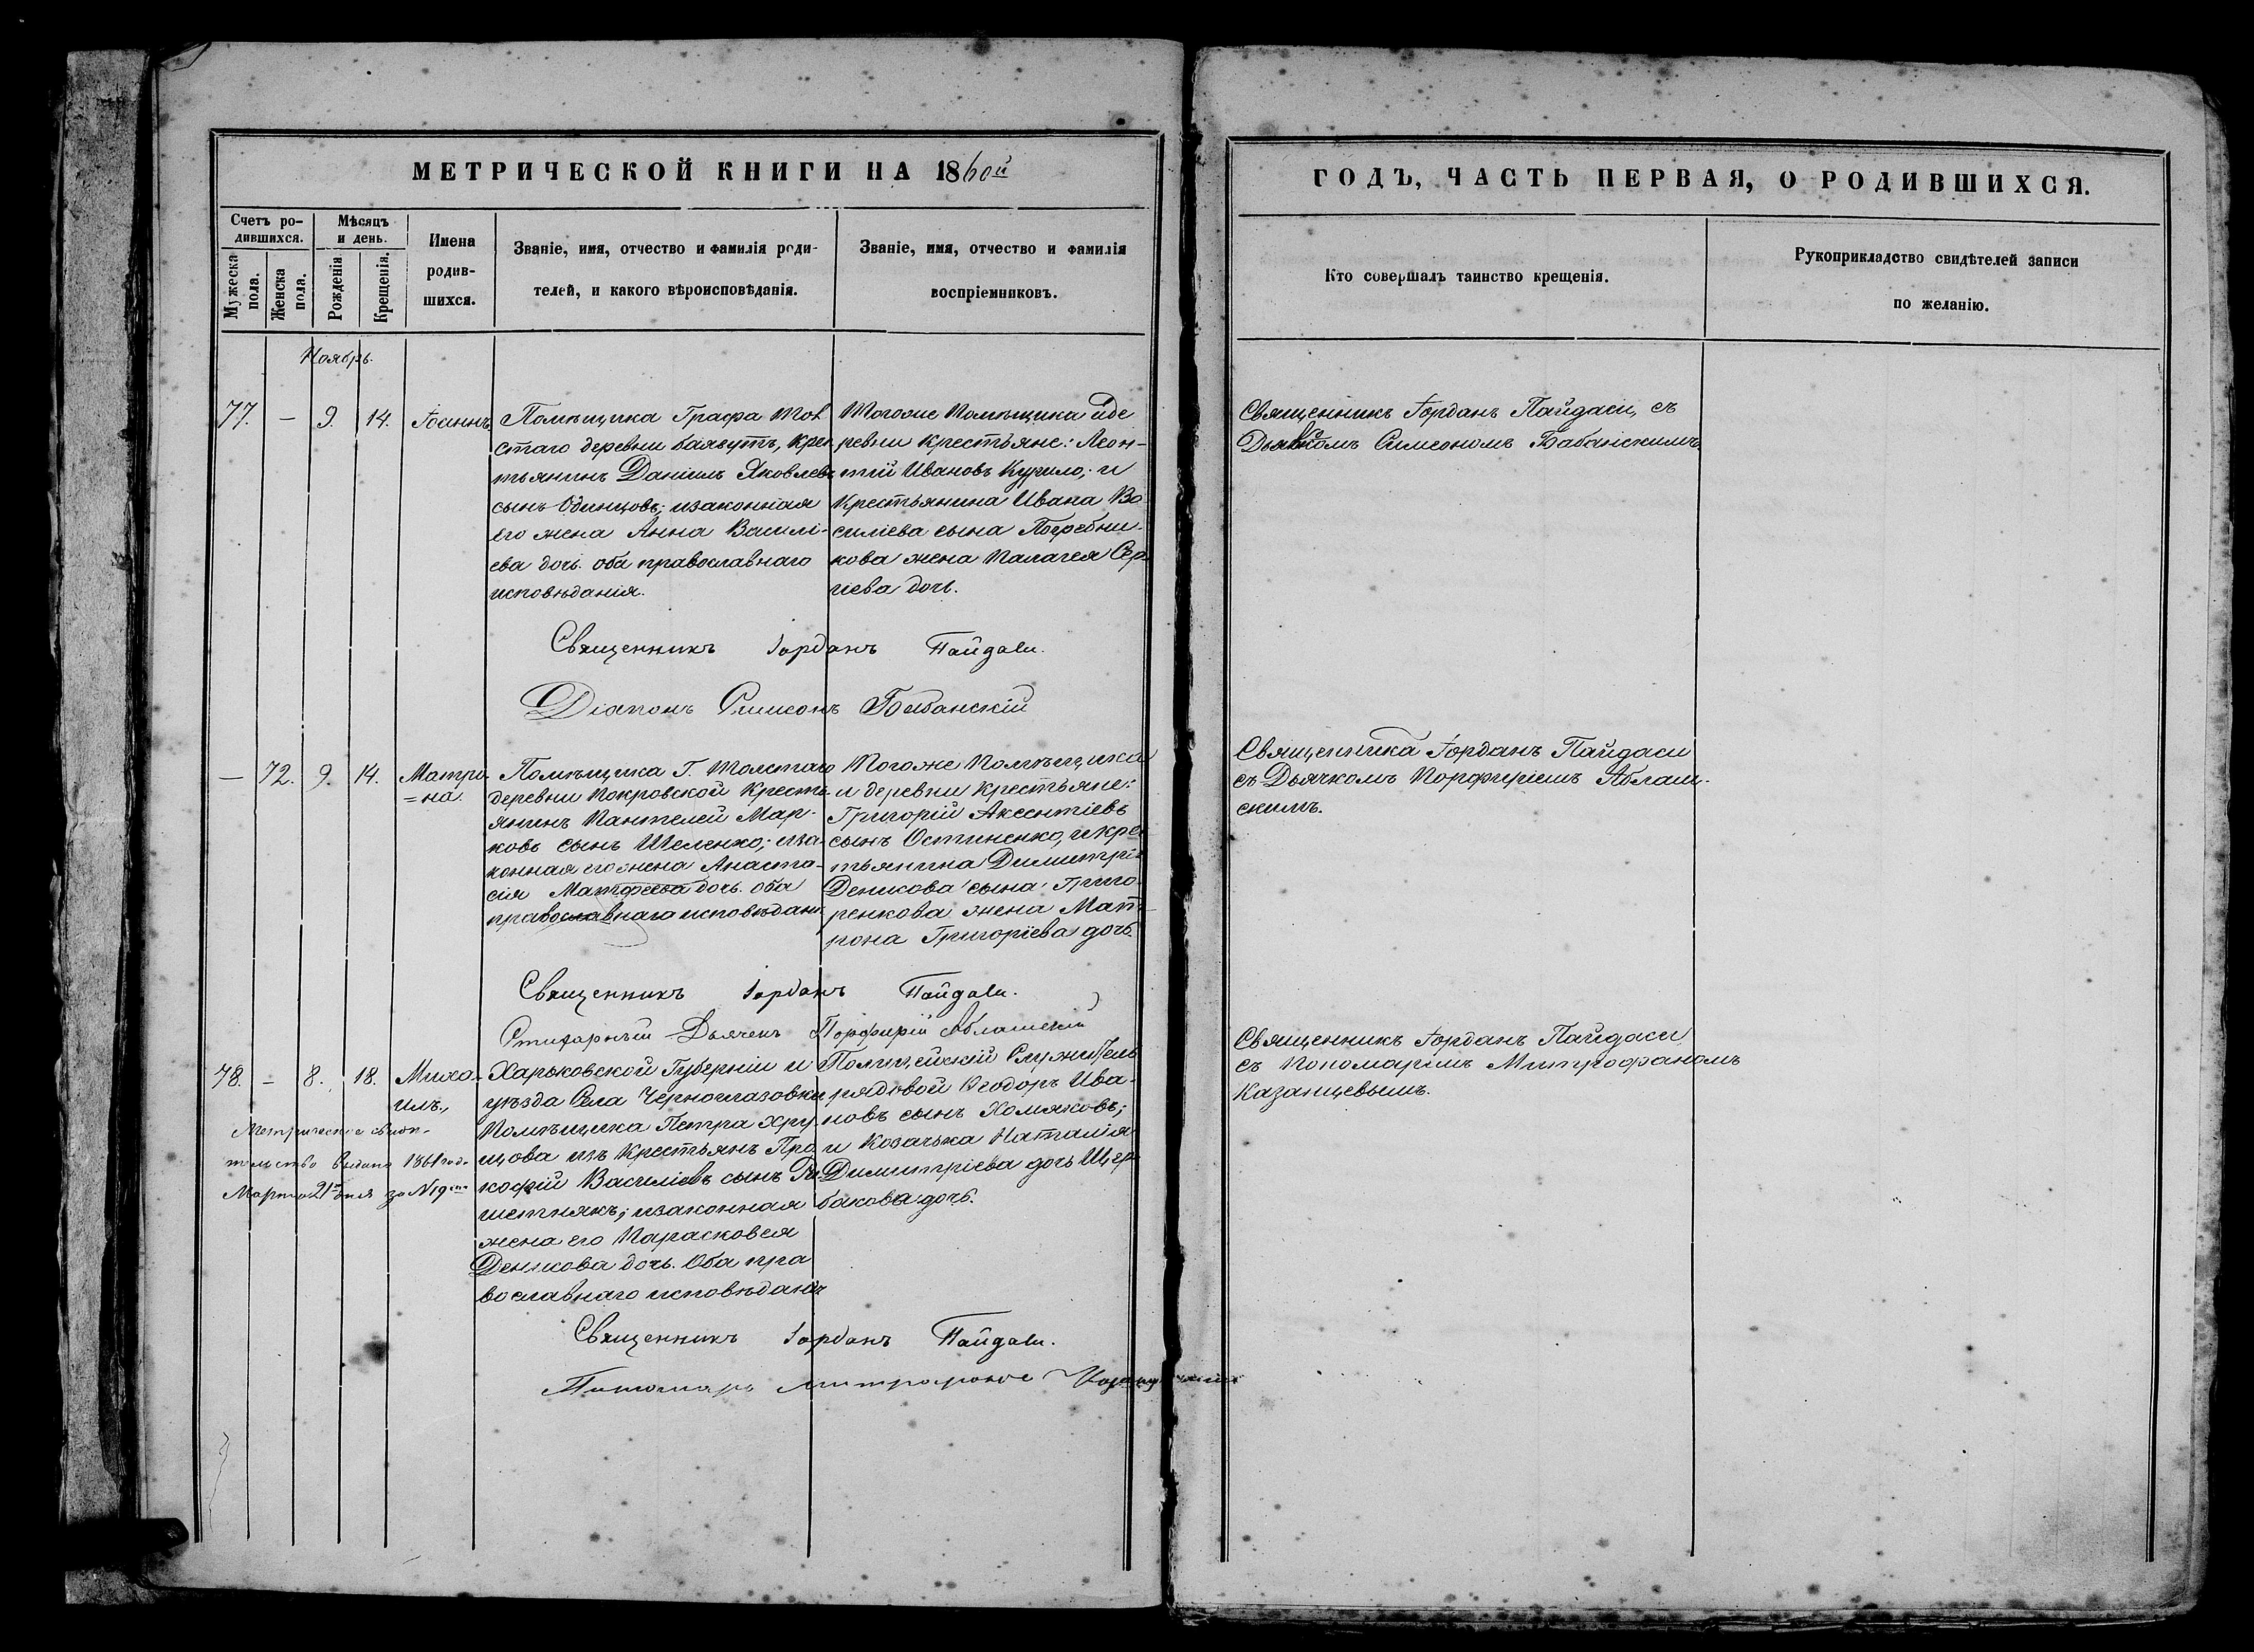 МЕТРИЧЕСКОЙ КНИГИ НА 1860й
Счетъ ро-
дившихся.
Мужеска
пола.
Женска
пола.
Мѣсяцъ
и день.
Рожденія.
Крещенія.
Имена
родив-
шихся.
Званіе, имя, отчество и фамилія роди-
телей, и какого вѣроисповѣданія.
Званіе, имя, отчество и фамилія
воспріемниковъ.
Ноябрь.
77. — 9. 14. Іоаннъ
Помѣщика Графа Тол
стаго деревни Баягутъ, крес
тьянинъ Даніилъ Яковлевъ
сынъ Одинцовъ; изаконная
его жена Анна Василі-
ева дочь. оба православнаго
исповѣданія.
Тогоже Помѣщика иде
ревни крестьяне: Леон-
тій Ивановъ Кучило; и
Крестьянина Ивана Ва
силіева сына Погребни-
кова жена Палагея Сер
гіева дочь.
Священникъ Іорданъ Пайдаси.
Діаконъ Симеонъ Бабанскій
— 72. 9. 14. Матро-
=на.
Помѣщика Г. Толстаго
деревни Покровской Кресть-
янинъ Пантелей Мар-
ковъ сынъ Шеленко; иза-
конная его жена Анаста-
сія Матфеева дочь. оба
православнаго исповѣдан
Тогоже Помѣщика
и деревни крестьяне:
Григорій Аксентіевъ
сынъ Остиненко, икрес
тьянина Димитрія
Денисова сына Григо-
ренкова жена Мат-
рона Григоріева дочь.
Священникъ Іорданъ Пайдаси.
Стихарный Дьячекъ Порфирій Аблашскій
78. — 8. 18. Миха-
илъ.
Метрическое свидѣ-
тельство выдано 1861 года
Марта 21го дня за N 19мъ
Харьковской Губерніи и
уѣзда Села Черноглазовки
Помѣщика Петра Хру
щова изъ Крестьянъ Про
кофій Василіевъ сынъ
изаконная
жена его Парасковея
Денисова дочь. Оба пра
вославнаго исповѣдан
Полицейскій Служитель
рядовой Ѳеодоръ Ива-
новъ сынъ Хомяковъ;
и Козачька Наталія
Димитріева дочь Щер
бакова дочь.
Священникъ Іорданъ Пайдаси.
Пономарь Митрофанъ Казанцевъ
ГОДЪ, ЧАСТЬ ПЕРВАЯ, О РОДИВШИХСЯ.
Кто совершалъ таинство крещенія.
Рукоприкладство свидѣтелей записи
по желанію.
Священникъ Іорданъ Пайдаси, съ
Симеономъ Бабанскимъ.
Священника Іорданъ Пайдаси
съ Дьячкомъ Порфиріемъ Аблаш-
скимъ.
Священникъ Іорданъ Пайдаси
съ Пономаремъ Митрофаномъ
Казанцевымъ.